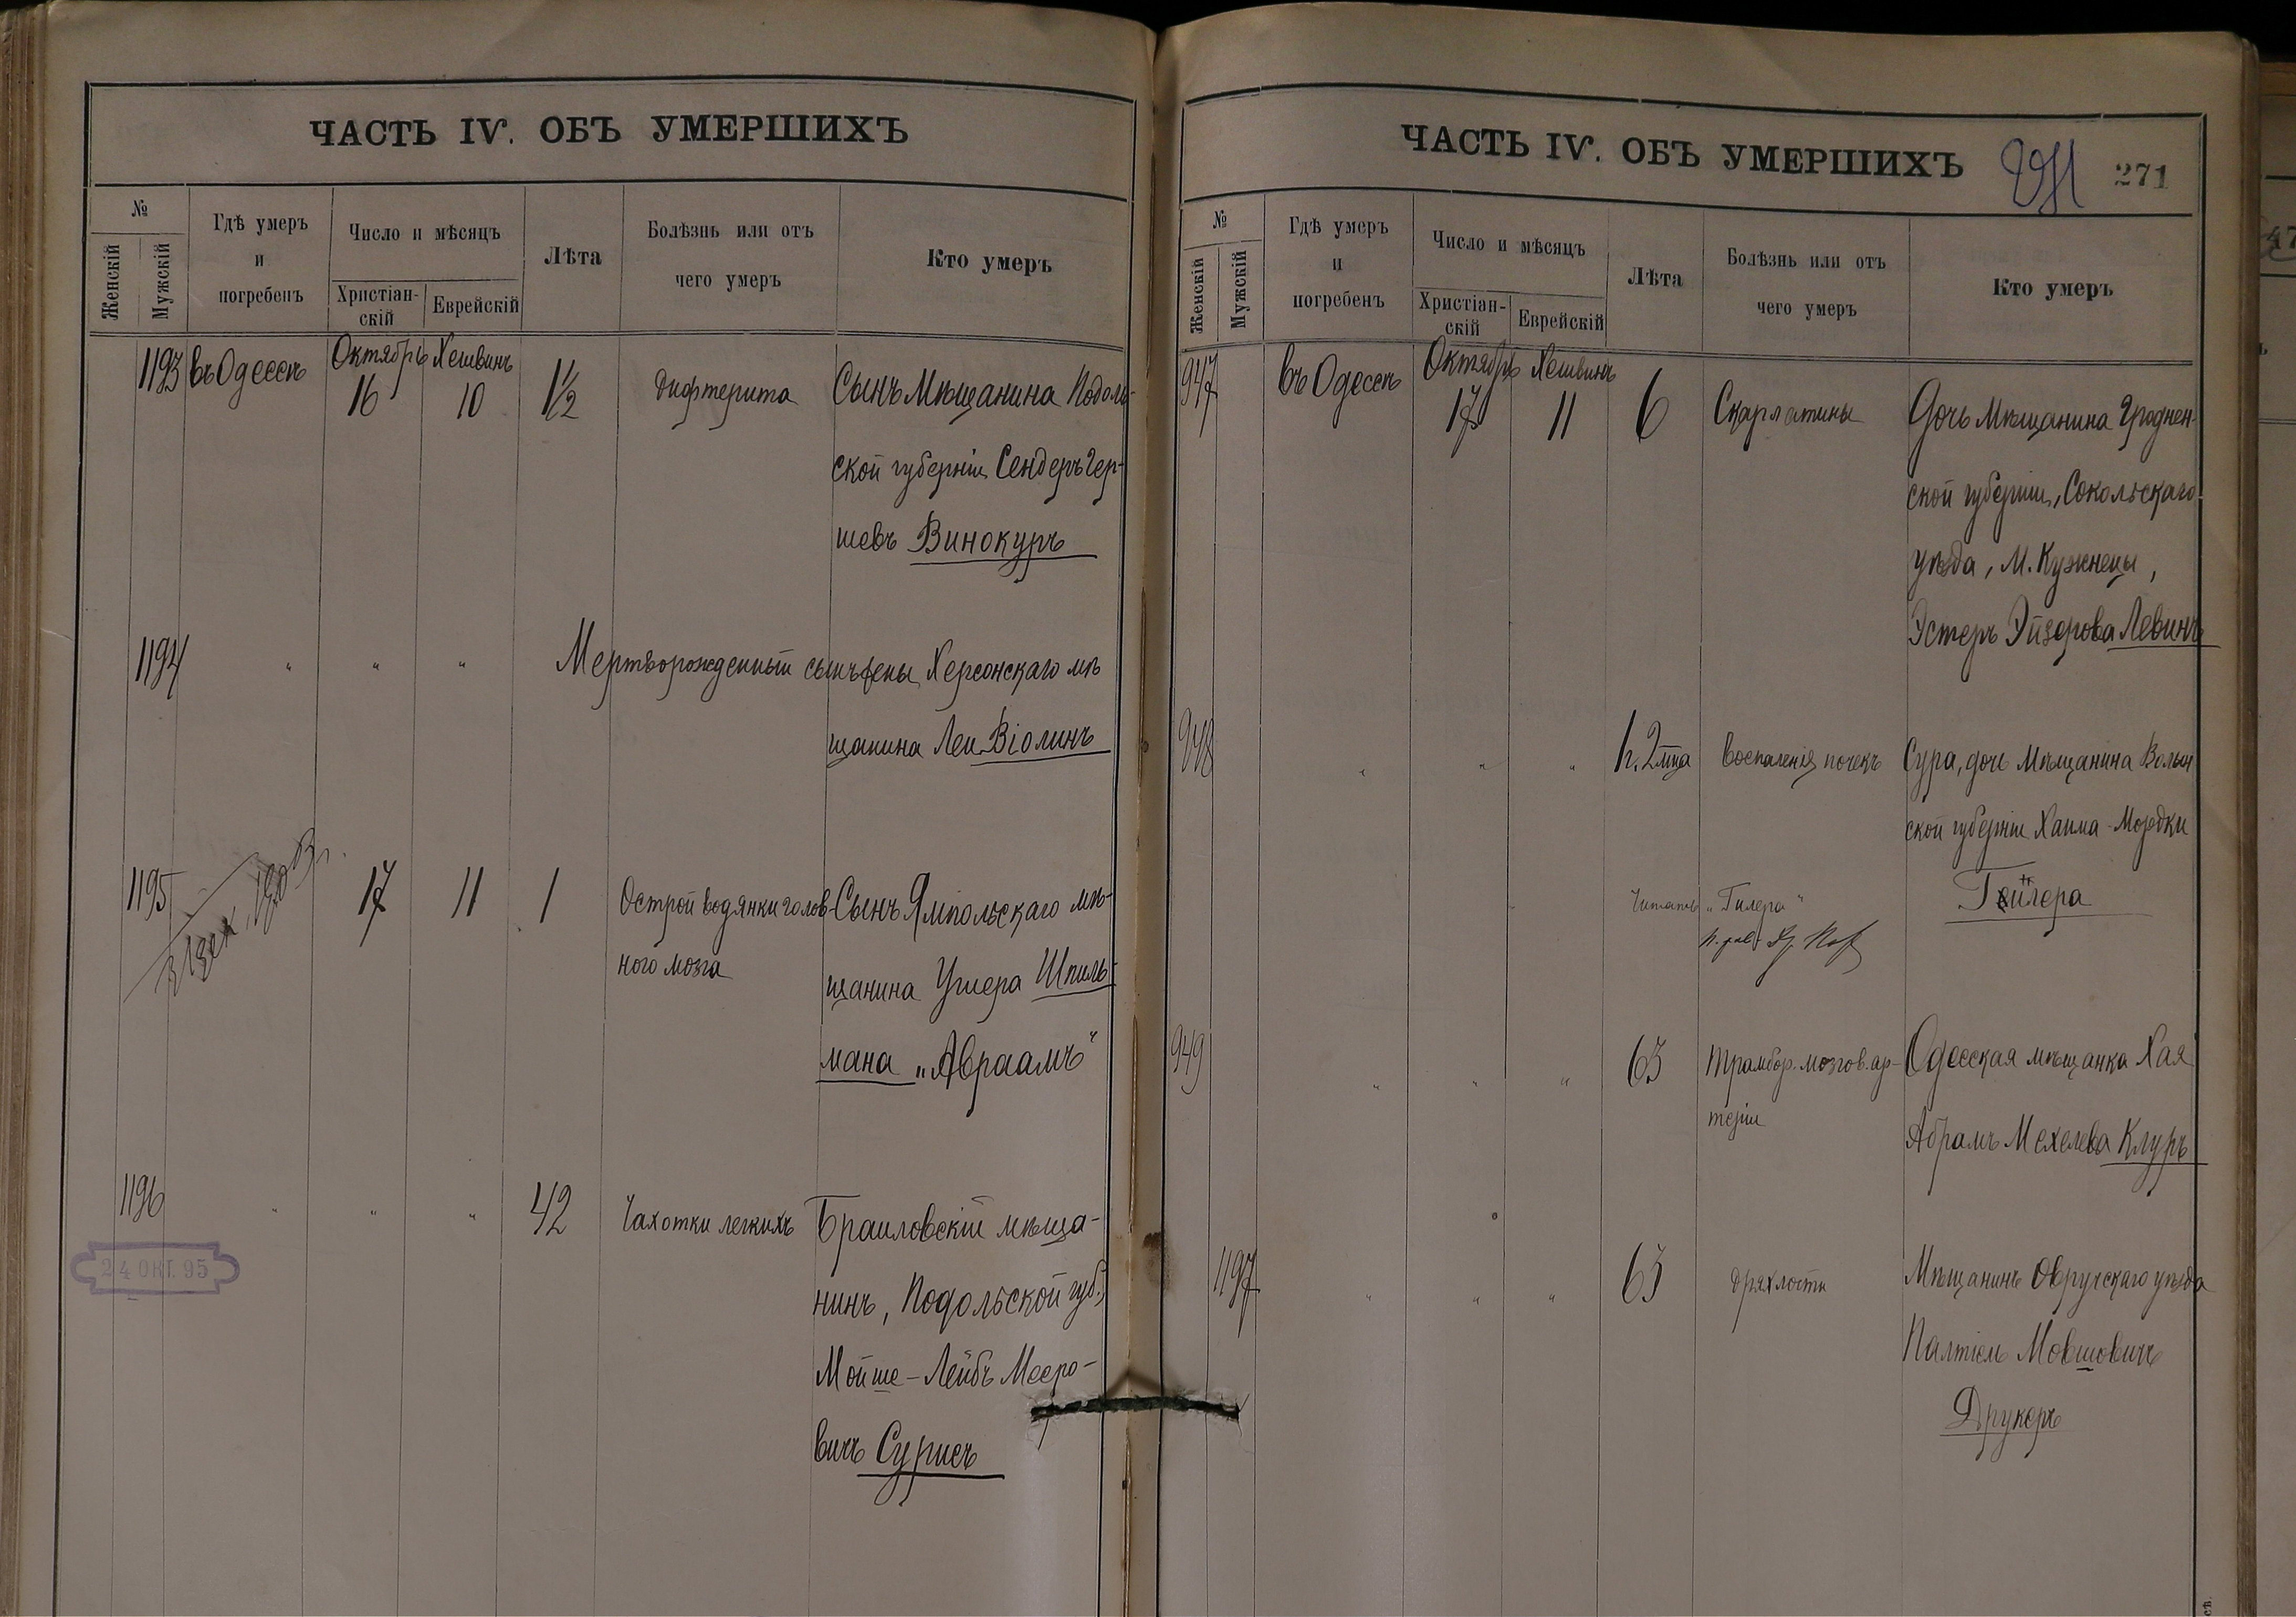 ЧАСТЬ IV. ОБЪ УМЕРШИХЪ
№
Женскій
Мужскій
Гдѣ умеръ
и
погребенъ
Число и мѣсяцъ
Христіан-
скій
Еврейскій
Лѣта
Болѣзнь или отъ
чего умеръ
Кто умеръ
1193 въ Одессѣ Октябрь 16 Хешвинъ 10 1½ Дифтерита Сынъ Мѣщанина Подоль-
ской губерніи Сендеръ Гер-
шевъ Винокуръ
1194 " " " Мертворожденный сынъ жены Херсонскаго мѣ
щанина Леи Віолинъ
1195 17 11 1 Острой водянки голов- Сынъ Ямпольскаго мѣ-
ного мозга
щанина Ушера Шпиль-
мана „Авраамъ"
1196 " " " 42 Чахотки легкихъ Браиловскій мѣща-
нинъ, Подольской губ.,
Мойше-Лейбъ Мееро-
вичъ Сурисъ
24 ОКТ. 95
ЧАСТЬ IV. ОБЪ УМЕРШИХЪ 271 271
№
Женскій
Мужскій
Гдѣ умеръ
и
погребенъ
Число и мѣсяцъ
Христіан-
скій
Еврейскій
Лѣта
Болѣзнь или отъ
чего умеръ
Кто умеръ
947 въ Одессѣ Октябрь 17 Хешвинъ 11 6 Скарлатины Дочь Мѣщанина Гроднен-
ской губерніи, Сокольскаго
уѣзда, М. Кужнецы,
Эстеръ Эйзерова Левинъ
948 " " " 1 г. 2 мца Воспаленія почекъ Сура, дочь Мѣщанина Волын
ской губерніи Хаима-Мордки
Гейлера
Читать „Гилера"
949 " " " 65 Трамбоз. мозгов. ар- Одесская мѣщанка Хая
теріи
Абрамъ Мехелева Клуръ
1197 " " " 65 Дряхлости Мѣщанинъ Овручскаго уѣзда
Палтіель Мовшовичъ
Друкеръ